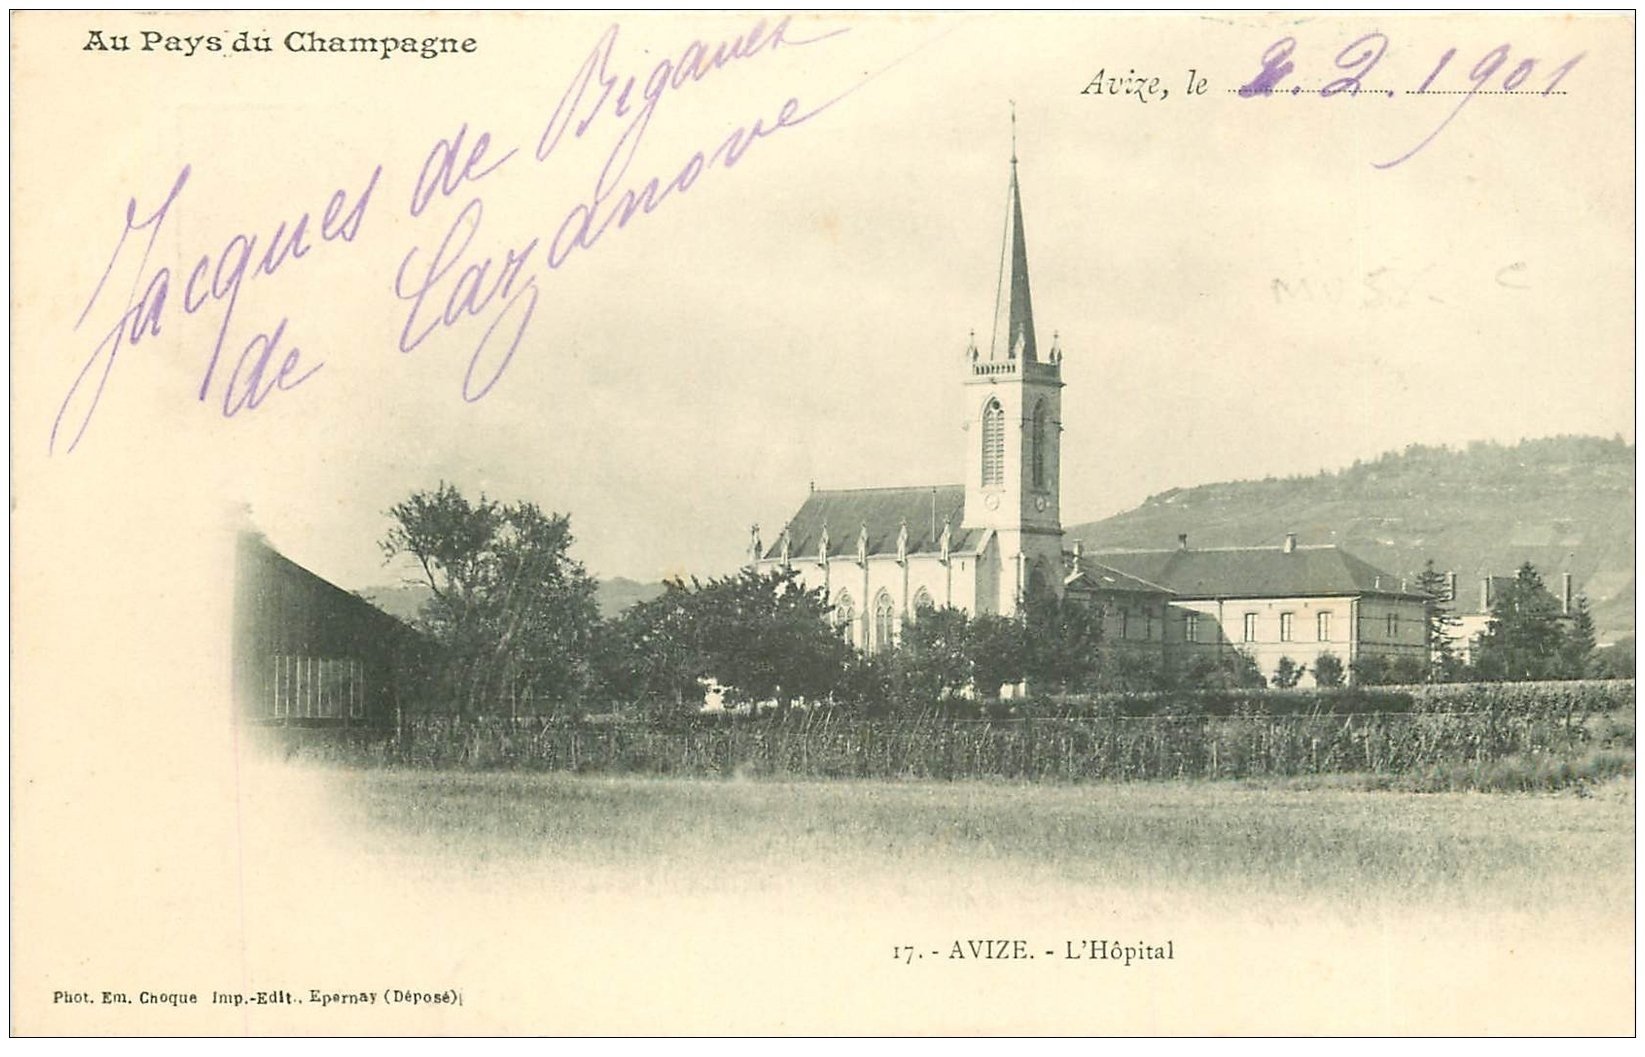 Au Pays du Champagne
Avize, le 2. 2. 1901
Jacques de Biganes
de Cazanove
17. - AVIZE. - L'Hôpital
Phot. Em. Choque Imp.-Edit., Epernay (Déposé)